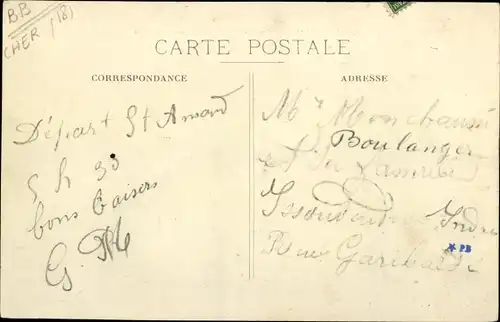 BB
CHER (18)
CARTE POSTALE
CORRESPONDANCE
ADRESSE
Départ St Amand
5 h 30
bons baisers
G
Mr
Boulanger
et sa famille
Issoudun Indre
Rue Garibaldi
* PB